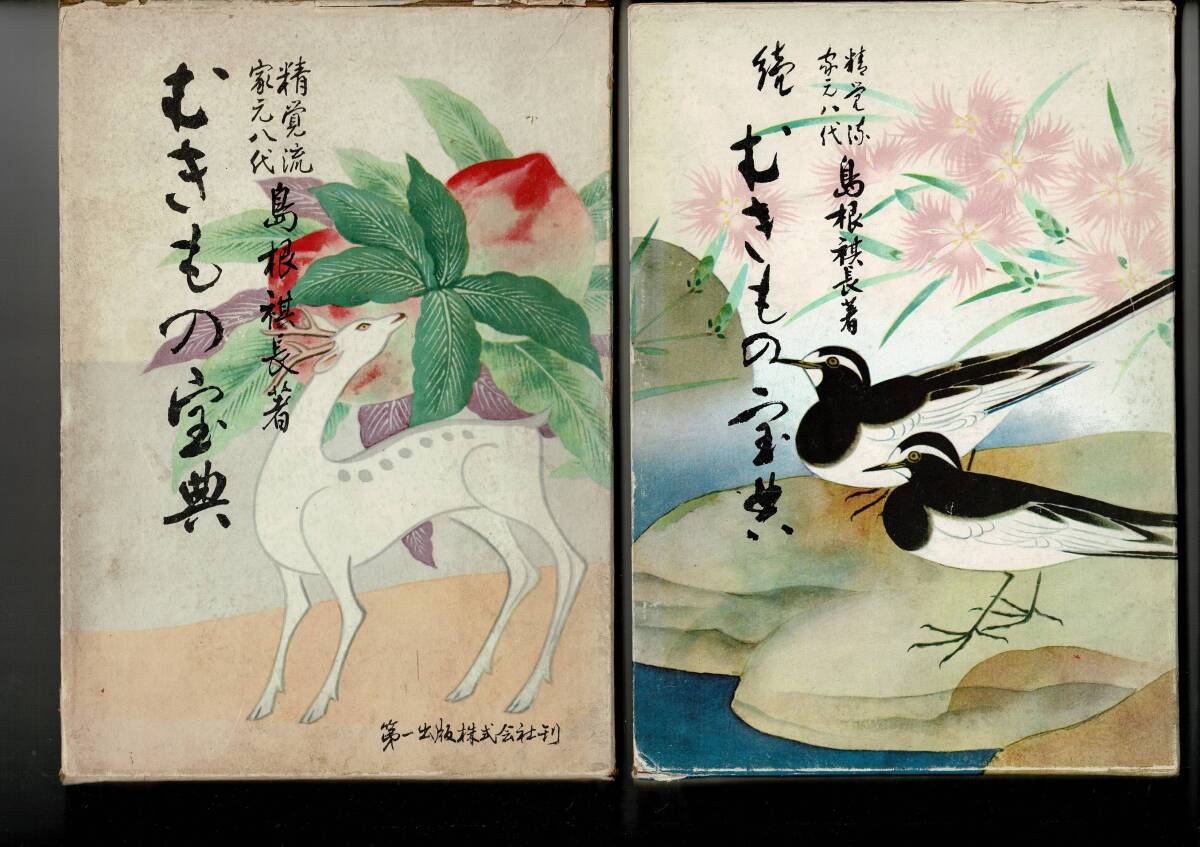 精覚流
家元八代
島根祺長著
むきもの宝典
第一出版株式会社刊
精覚流
家元八代
島根祺長著
続 むきもの宝典